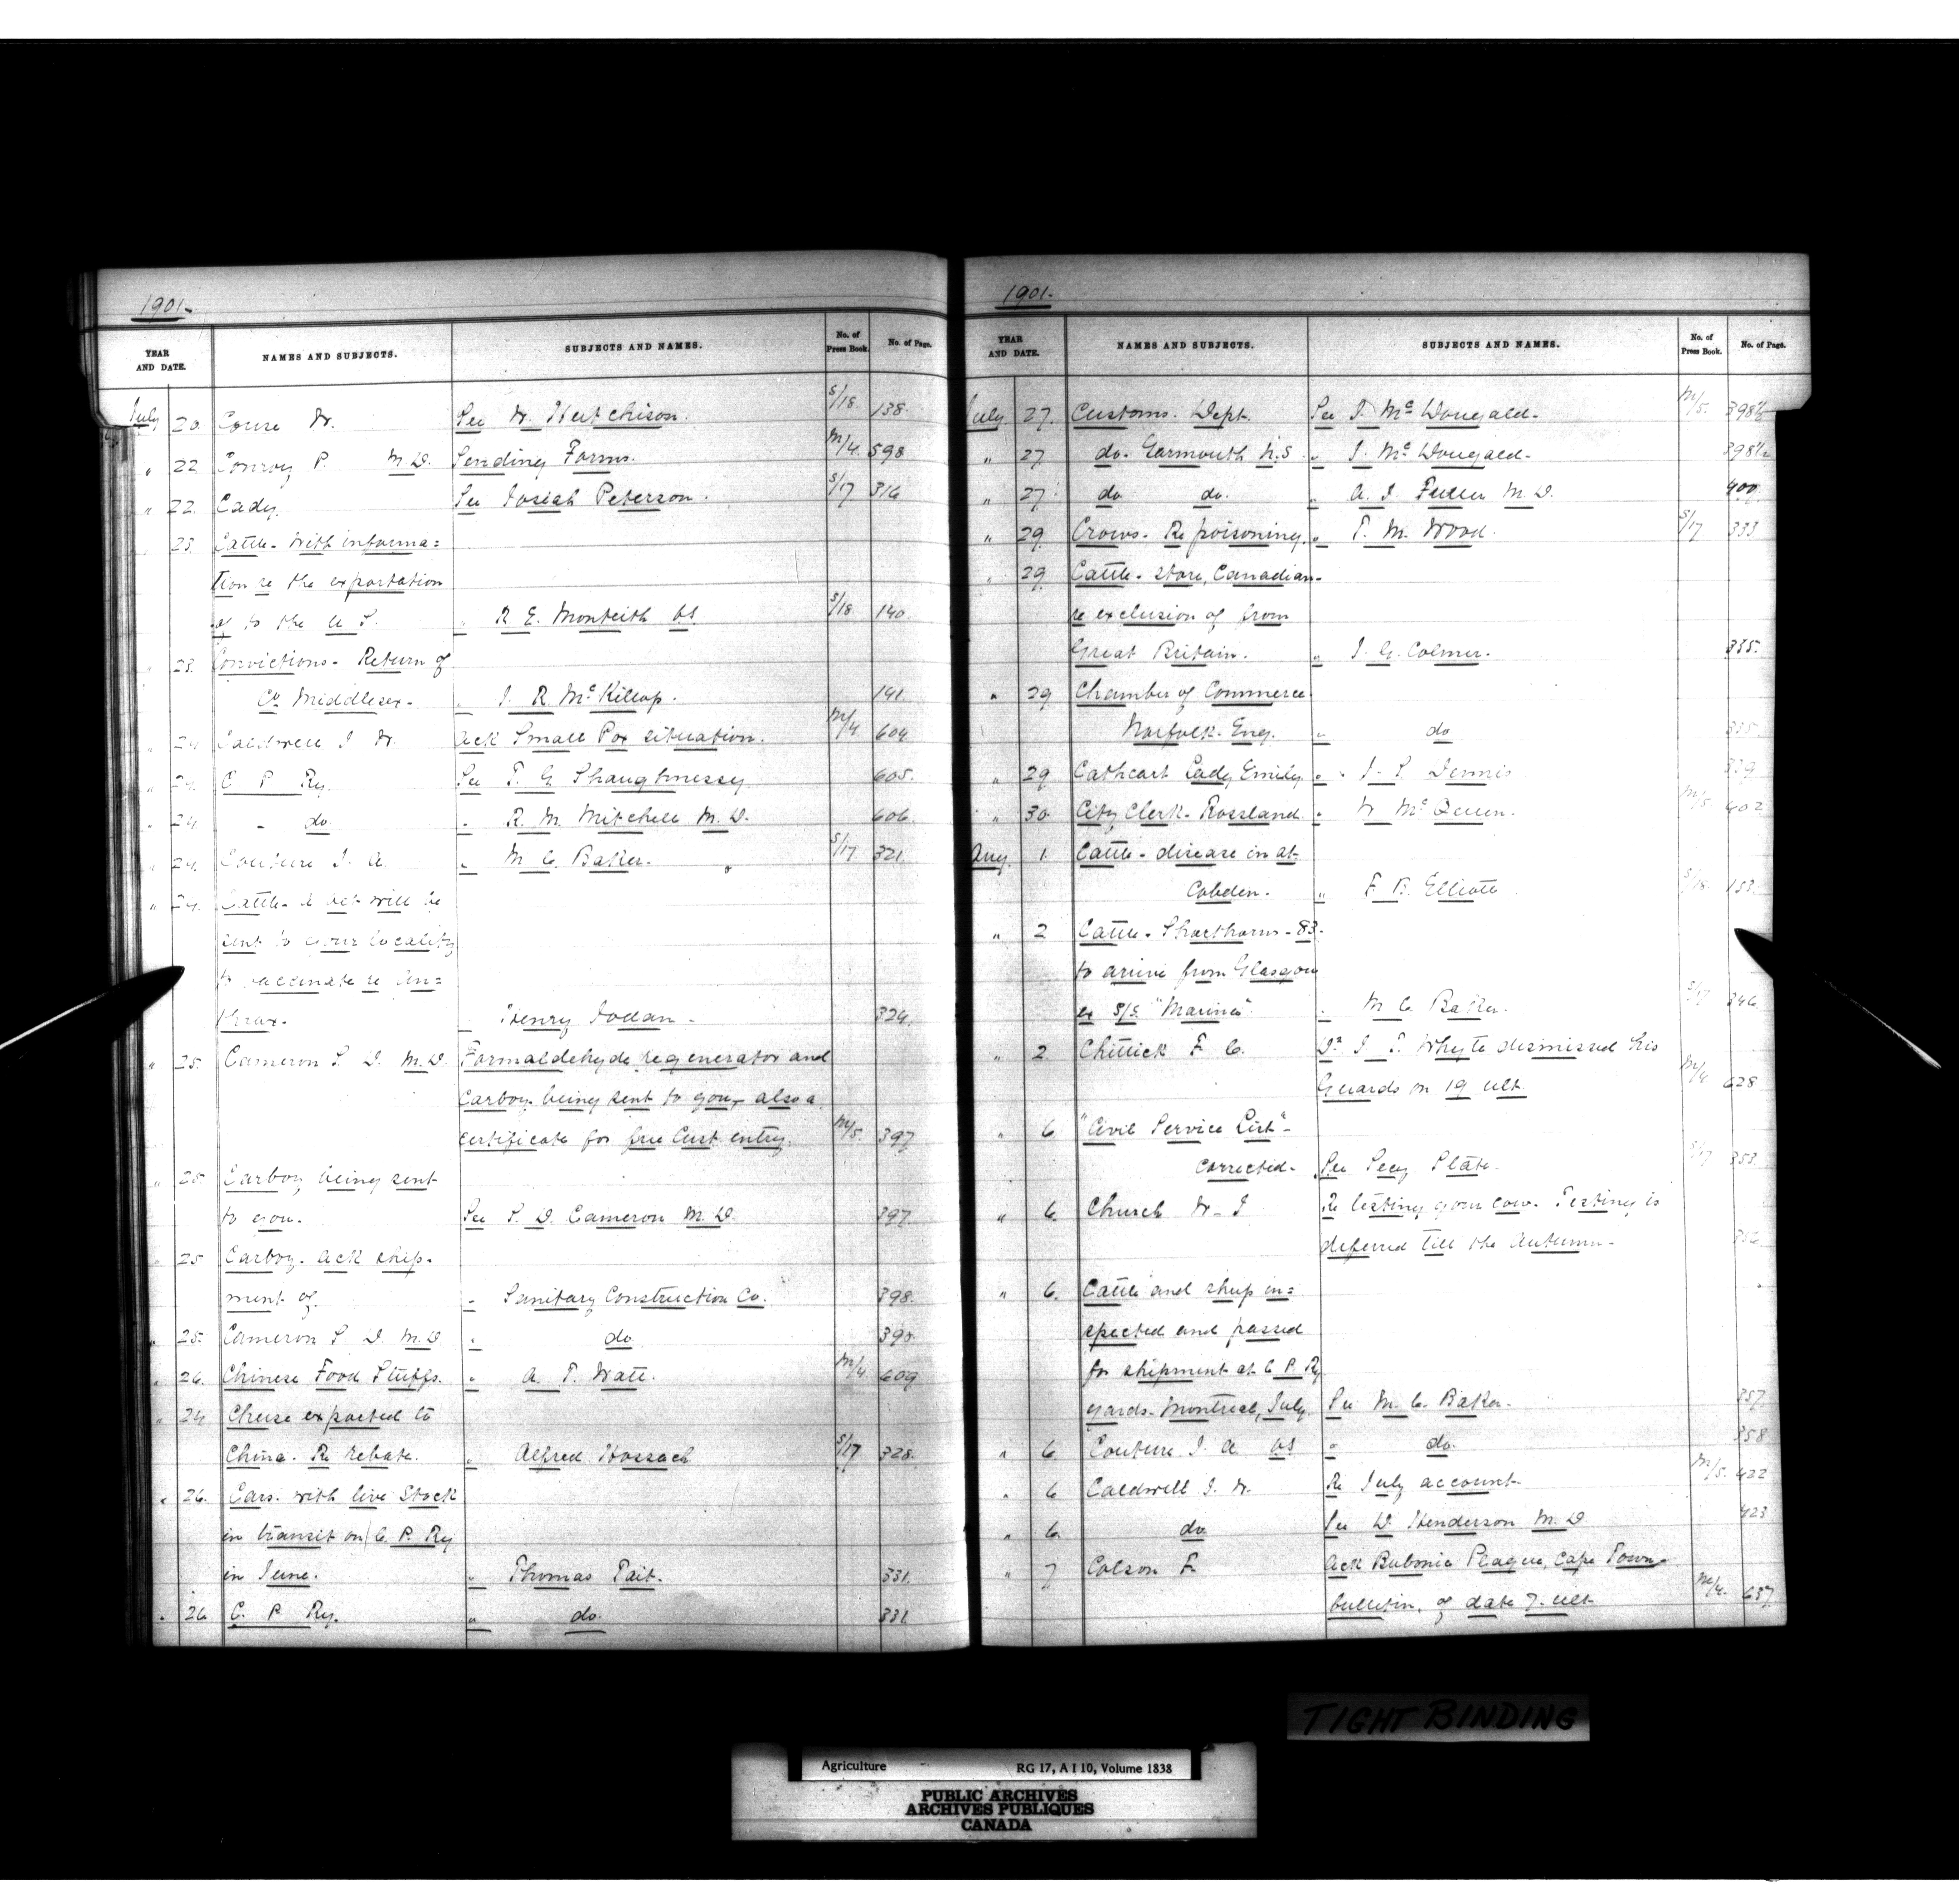 1901-
YEAR AND DATE. NAMES AND SUBJECTS. SUBJECTS AND NAMES. No. of Press Book. No. of Page.
July 20 Couse W. See W. Hutchison. S/18. 138.
" 22 Conroy P. M.D. Sending Forms. M/4. 598
" 22. Cady. See Josiah Peterson. S/17 316
23. Cattle. With informa=
tion re the exportation
of to the U S. " R E. Monteith VS S/18. 140.
" 23. Convictions- Return of
Co Middlesex- " J. R. McKillop. 141.
" 24 Caldwell J W. Ack Small Pox situation. M/4 604
" 24. C P Ry. See T. G Shaughnessy 605.
" 24. " do. " R. M. Mitchell M.D. 606.
" 24. Couture J. A. " M C. Baker. S/17 321.
" 24. Cattle- A vet will be
sent to your locality
to vaccinate re An=
thrax- " Henry 324.
" 25. Cameron S. D. M.D. Formaldehyde regenerator and
Carboy being sent to you, also a
certificate for free Cust. entry. M/5. 397
" 25. Carboy being sent
to you. See S. D. Cameron M.D. 397.
" 25 Carboy. Ack ship-
ment of. " Sanitary Construction Co. 398.
" 25. Cameron S D. M.D " do 398.
" 26. Chinese Food Stuffs. " A. T. Watt. M/4. 609
" 24 Cheese exported to
China. Re rebate. " Alfred Hossack S/17 328.
" 26. Cars. with live Stock
in transit on C. P. Ry
in June. " Thomas Tait. 331.
" 26 C. P Ry. " do. 331
1901.
YEAR AND DATE. NAMES AND SUBJECTS. SUBJECTS AND NAMES. No. of Press Book. No. of Page.
July 27. Customs. Dept. See J. McDougald- M/5. 398½
" 27 do- Yarmouth N.S. " J. McDougald- 398½
" 27. do do. " A. J. Fuller M D. 400.
" 29. Crows- Re poisoning. " T. M. Wood. S/17 333
" 29. Cattle- store, Canadian-
re exclusion of from
Great Britain. " J. G. Colmer. 335.
" 29 Chamber of Commerce
Norfolk- Eng. " do 335.
" 29 Cathcart Lady Emily " J. S. Dennis 339
" 30. City Clerk- Rossland. " W McQueen. M/5. 402
Aug. 1. Cattle- disease in at
Cobden. " F. B. Elliott S/18. 153.
" 2 Cattle- Shorthorns- 83-
to arrive from Glasgow
ex S/S. "Marina". " M C Baker. S/17 346
" 2. Chittick F. C. Dr. J. T. Whyte dismissed his
Guards on 19 ult M/4 628
" 6. "Civil Service List"-
corrected- See Secy State. S/17 353
" 6. Church W. J Re testing your cow. Testing is
deferred till the Autumn- 356
" 6. Cattle and sheep in=
spected and passed
for shipment at C P. Ry
yards. Montreal, July. See M. C. Baker. 357.
" 6 Couture J. A VS " do. 358
" 6 Caldwell J. W. Re July account- M/5. 422
" 6. do. See D. Henderson M.D. 423
" 7 Colson F. Ack Bubonic Plague, Cape Town-
bulletin, of date 7. ult M/4. 637
TIGHT BINDING
Agriculture RG 17, A I 10, Volume 1838
PUBLIC ARCHIVES
ARCHIVES PUBLIQUES
CANADA